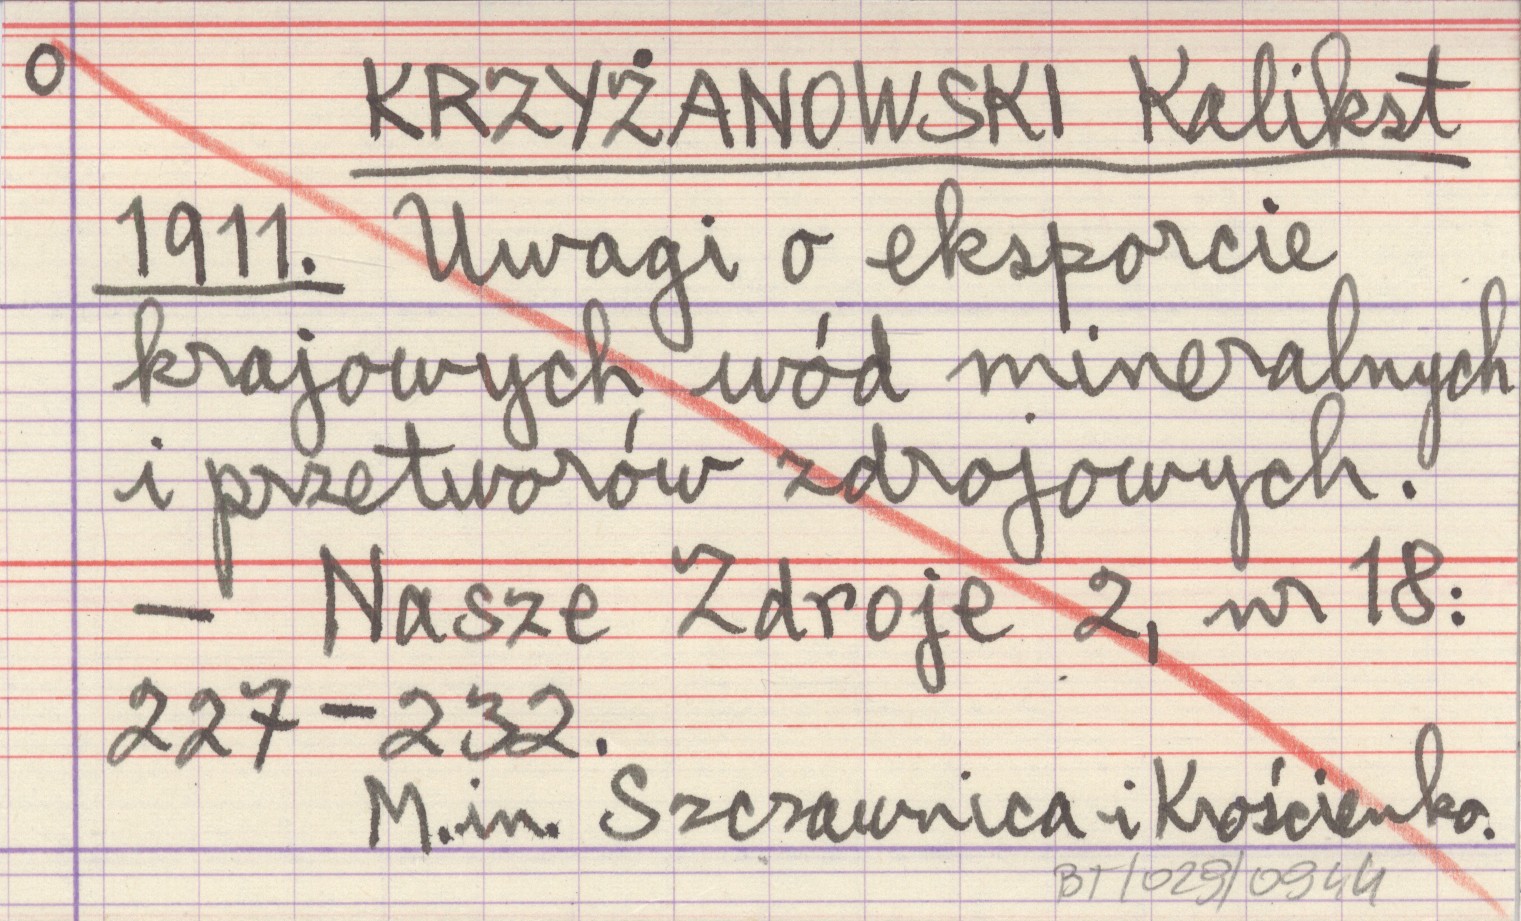 O
KRZYŻANOWSKI Kalikst
1911. Uwagi o eksporcie
krajowych wód mineralnych
i przetworów zdrojowych.
— Nasze Zdroje 2, nr 18:
227-232.
M.in. Szczawnica i Krościenko.
BT/029/0944